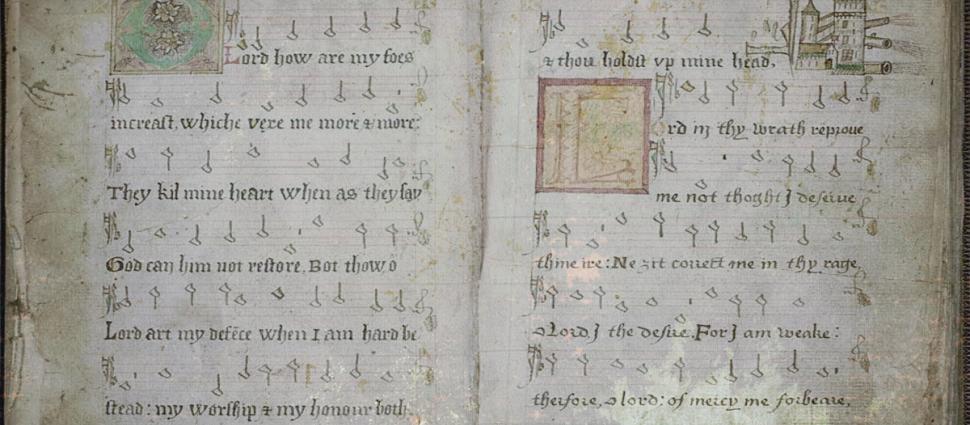 Lord how are my foes
increast, whiche vexe me more & more:
They kil mine heart when as they say
God can him not restore. Bot thow o
Lord art my defēce when I am hard be
stead: my worship & my honour both.
& thou holdst vp mine head,
rd in thy wrath reproue
me not thoght I deserue
thine ire: Ne ȝit correct me in thy rage,
o Lord, I the desire. For I am weake:
therfore, o lord: of mercy me forbeare,